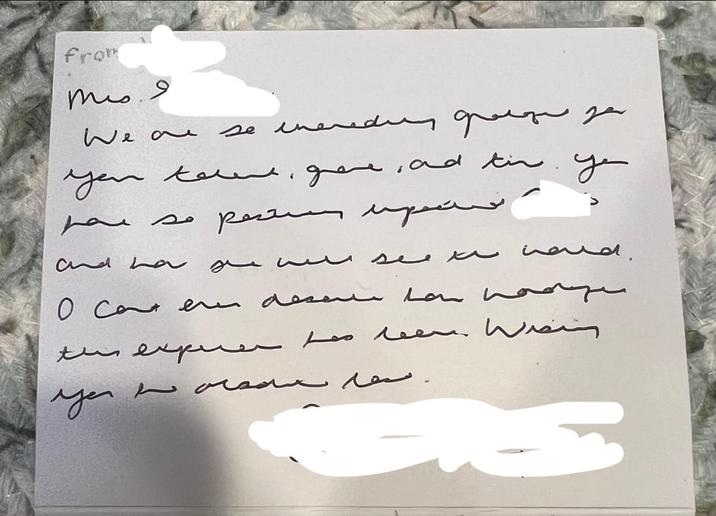 from
Mrs.
We are so incredibly grateful for
your talent, grace, and time. You
have so positively impacted
and how she will see the world.
I can't even describe how wonderful
this experience has been. Wishing
you the absolute best.